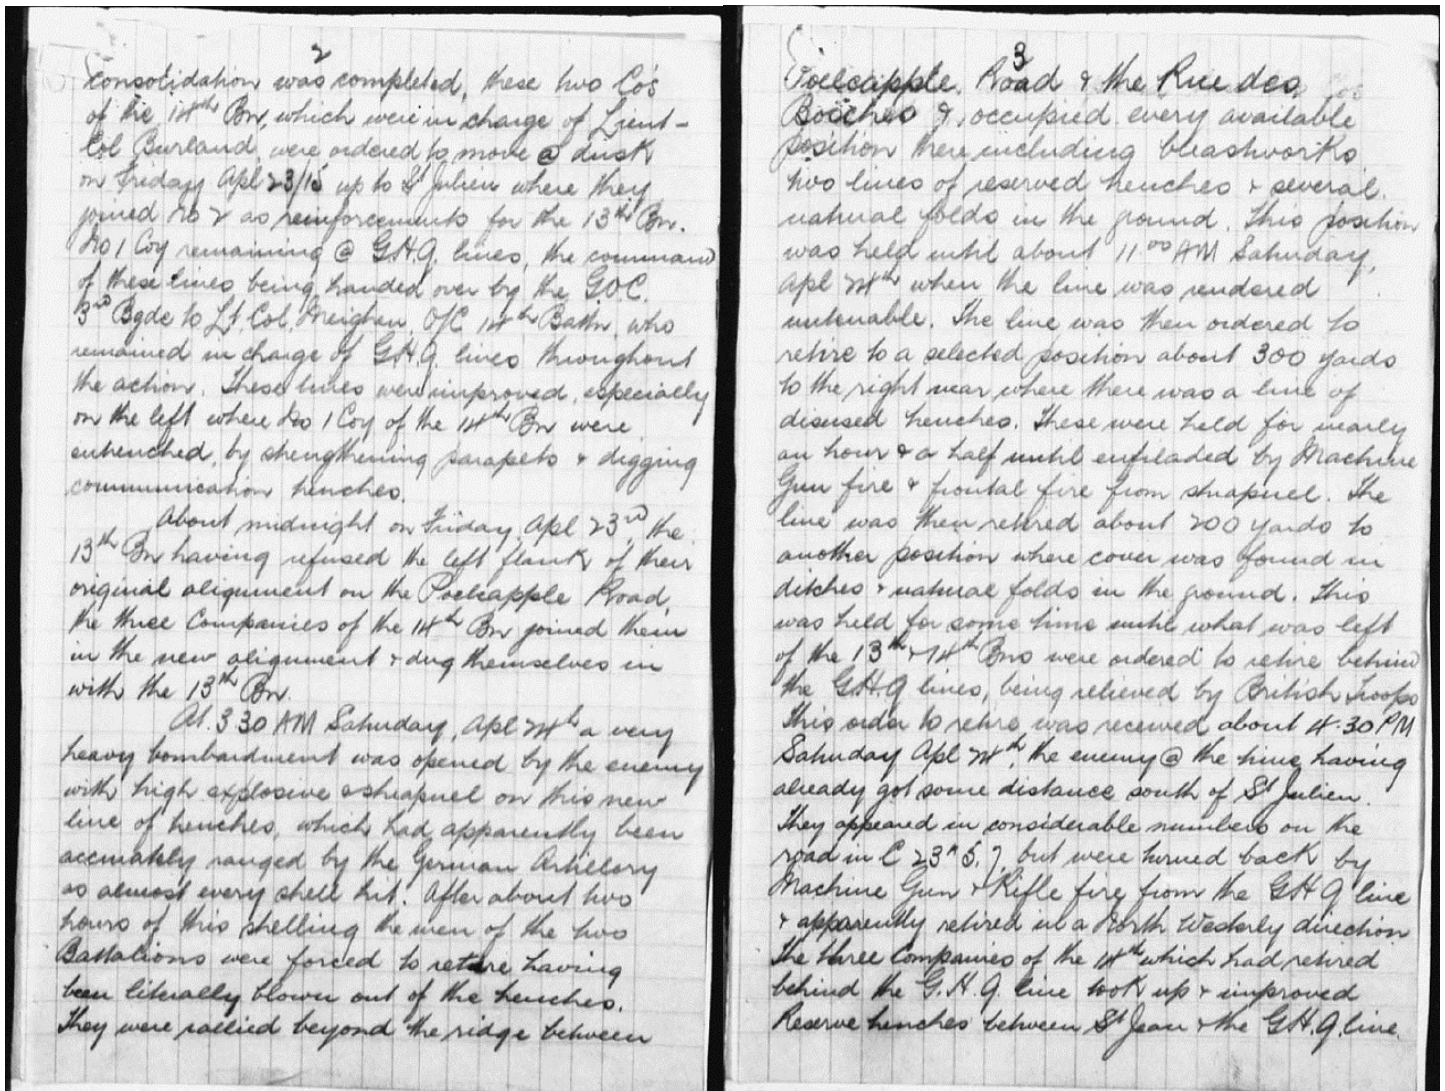 2
consolidation was completed, these two Co's
of the 14th Bn, which were in charge of Lieut-
Col Burland, were ordered to move @ dusk
on Friday Apl 23/15 up to St Julien where they
joined No 2 as reinforcements for the 13th Bn.
No 1 Coy remaining @ G.H.Q. lines, the command
of these lines being handed over by the G.O.C.
3rd Bgde to Lt. Col. Meighen, O/C 14th Battn. who
remained in charge of G.H.Q. lines throughout
the action. These lines were improved, especially
on the left where No 1 Coy of the 14th Bn were
entrenched, by strengthening parapets & digging
communication trenches.
About midnight on Friday, Apl 23rd, the
13th Bn having refused the left flank of their
original alignment on the Poelcapple Road,
the three Companies of the 14th Bn joined them
in the new alignment & dug themselves in
with the 13th Bn.
At 3.30 AM Saturday, Apl 24th a very
heavy bombardment was opened by the enemy
with high explosive & shrapnel on this new
line of trenches, which had apparently been
accurately ranged by the German Artillery
as almost every shell hit. After about two
hours of this shelling the men of the two
Battalions were forced to retire having
been literally blown out of the trenches.
They were rallied beyond the ridge between
3
Poelcapple. Road & the Rue des
Bosches &, occupied every available
position there including breastworks
two lines of reserved trenches & several
natural folds in the ground. This position
was held until about 11.00 AM Saturday,
Apl 24th when the line was rendered
untenable. The line was then ordered to
retire to a selected position about 300 yards
to the right rear where there was a line of
disused trenches. These were held for nearly
an hour & a half until enfiladed by Machine
Gun fire & frontal fire from shrapnel. The
line was then retired about 200 yards to
another position where cover was found in
ditches & natural folds in the ground. This
was held for some time until what was left
of the 13th & 14th Bns were ordered to retire behind
the G.H.Q lines, being relieved by British Troops
This order to retire was received about 4.30 PM
Saturday Apl 24th, the enemy @ the time having
already got some distance south of St Julien.
They appeared in considerable numbers on the
road in C 23 5.7 but were turned back by
Machine Gun & Rifle fire from the G.H.Q line
& apparently retired in a North Westerly direction
The three Companies of the 14th which had retired
behind the G.H.Q. line took up & improved
Reserve trenches between St Jean & the G.H.Q. line.